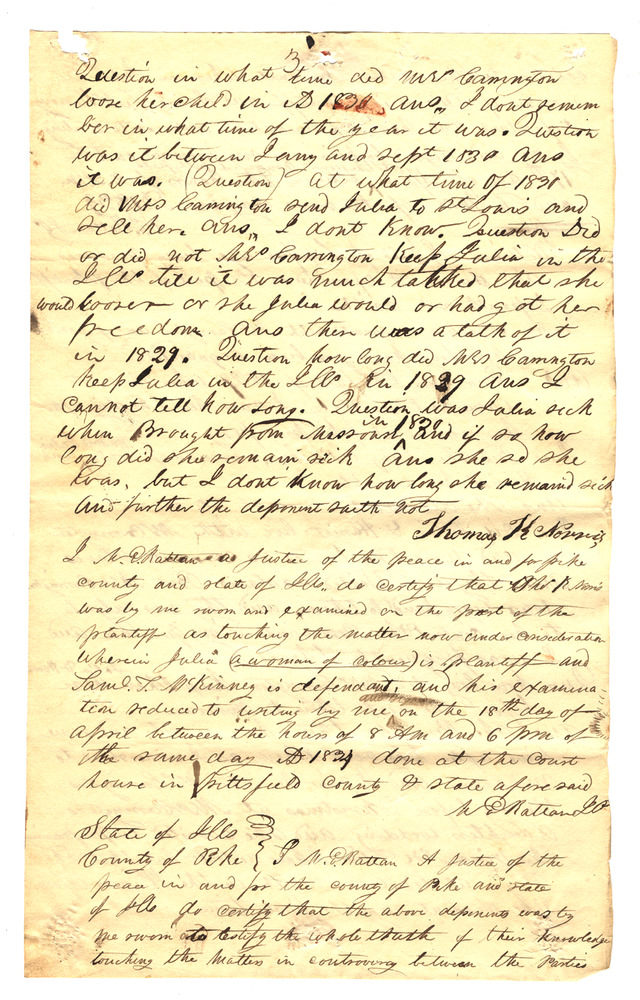 3
Question in what time did Mrs Carrington
loose her child in AD 1830 ans,, I dont remem
ber in what time of the year it was. Question
was it between Jany and Sept 1830 Ans
it was. (Question) at what time of 1830
did Mrs Carrington send Julia to St Louis and
sell her. Ans,, I dont Know. Question Did
or did not Mrs Carrington Keep Julia in the
Ills till it was much talked that she
would looser or she Julia would or had got her
freedom ans there was a talk of it
in 1829. Question how long did Mrs Carrington
Keep Julia in the Ills in 1829 Ans I
cannot tell how long. Question was Julia sick
when Brought from Missouri in 1830 and if so how
long did she remain sick ans she sd she
was, but I dont Know how long she remaind sick
And further the deponent saith not
Thomas K Norris
I M. E Rattan a Justice of the peace in and for pike
county and state of Ills. do certify that Tho K Norris
was by me sworn and examined on the part of the
plantiff as touching the matter now under consideration
wherein Julia (a woman of colour) is plantiff and
Saml. T. McKinney is defendant, and his examina-
tion reduced to writing by me on the 18th day of
April between the hours of 8 Am and 6 pm of
the same day AD 1831 done at the Court
house in Pittsfield County & state aforesaid
M E Rattan JP
State of Ills
County of Pike } I M. E Rattan A Justice of the
peace in and for the county of Pike and state
of Ills do certify that the above deponents was by
me sworn to testify the whole truth of their Knowledge
touching the Matters in controversy between the Parties